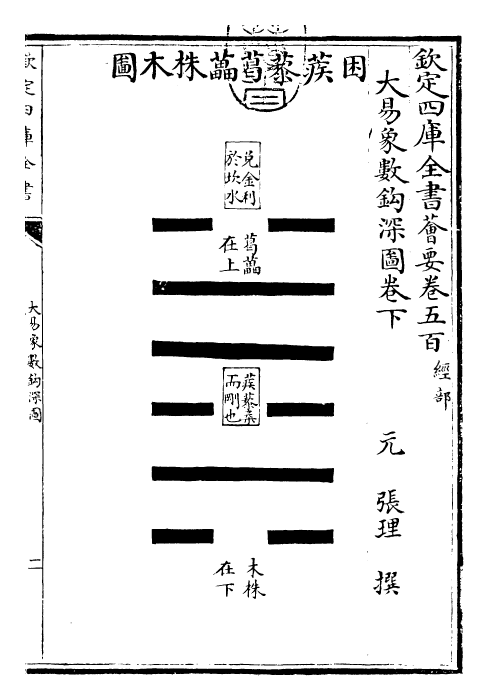 欽定四庫全書薈要卷五百
經部
大易象數鈎深圖卷下
元 張理 撰
困蒺藜葛藟株木圖
兌金利
於坎水
葛藟
在上
蒺藜柔
而剛也
木株
在下
欽定四庫全書
大易象數鈎深圖
二